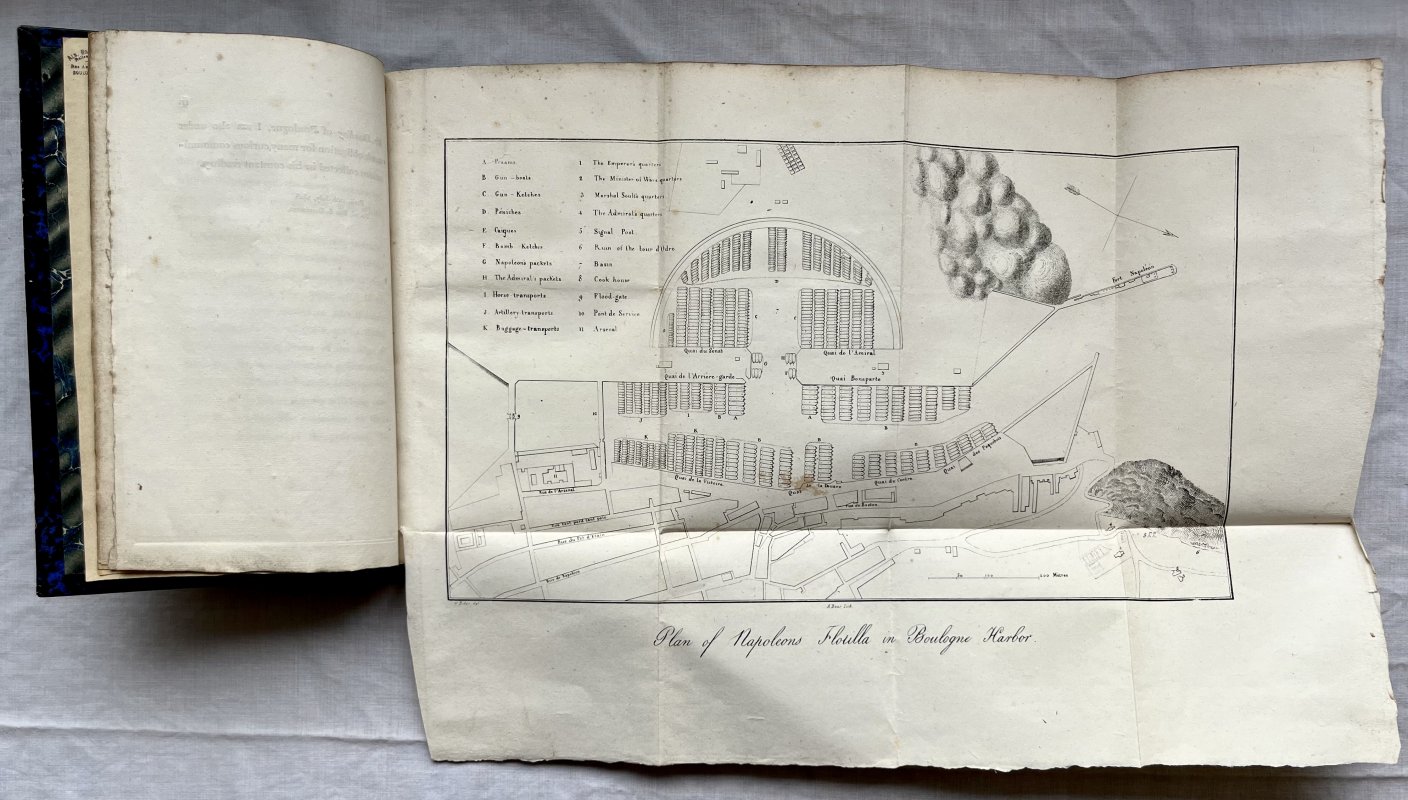 A. Praams
B Gun-boats
C. Gun-Ketches
D. Péniches
E. Caïques
F. Bomb-Ketches
G Napoleon's packets
H The Admiral's packets
I Horse-transports
J. Artillery-transports
K. Baggage-transports
1 The Emperor's quarters
2 The Minister of Wars quarters
3 Marshal Soult's quarters
4 The Admiral's quarters
5 Signal Post
6 Ruin of the tour d'Odre
7 Basin
8 Cook house
9 Flood-gate
10 Pont de Service
11 Arsenal
Fort Napoléon
Quai de l'Amiral
Quai de l'Arrière-garde
Quai Bonaparte
Quai de la Victoire
Quai de la Douane
Quai du Centre
Quai des Paquebots
Rue de l'Arsenal
Rue tant perd tant paie
Rue du Pot d'Etain
Rue de Boston
50 100 200 Mètres
Plan of Napoleons Flotilla in Boulogne Harbor.